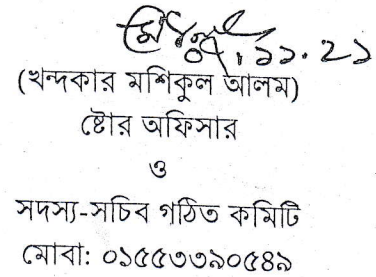 ০৭.১১.২১
(খন্দকার মশিকুল আলম)
ষ্টোর অফিসার
ও
সদস্য-সচিব গঠিত কমিটি
মোবা: ০১৫৫৩৩৯০৫৪৯